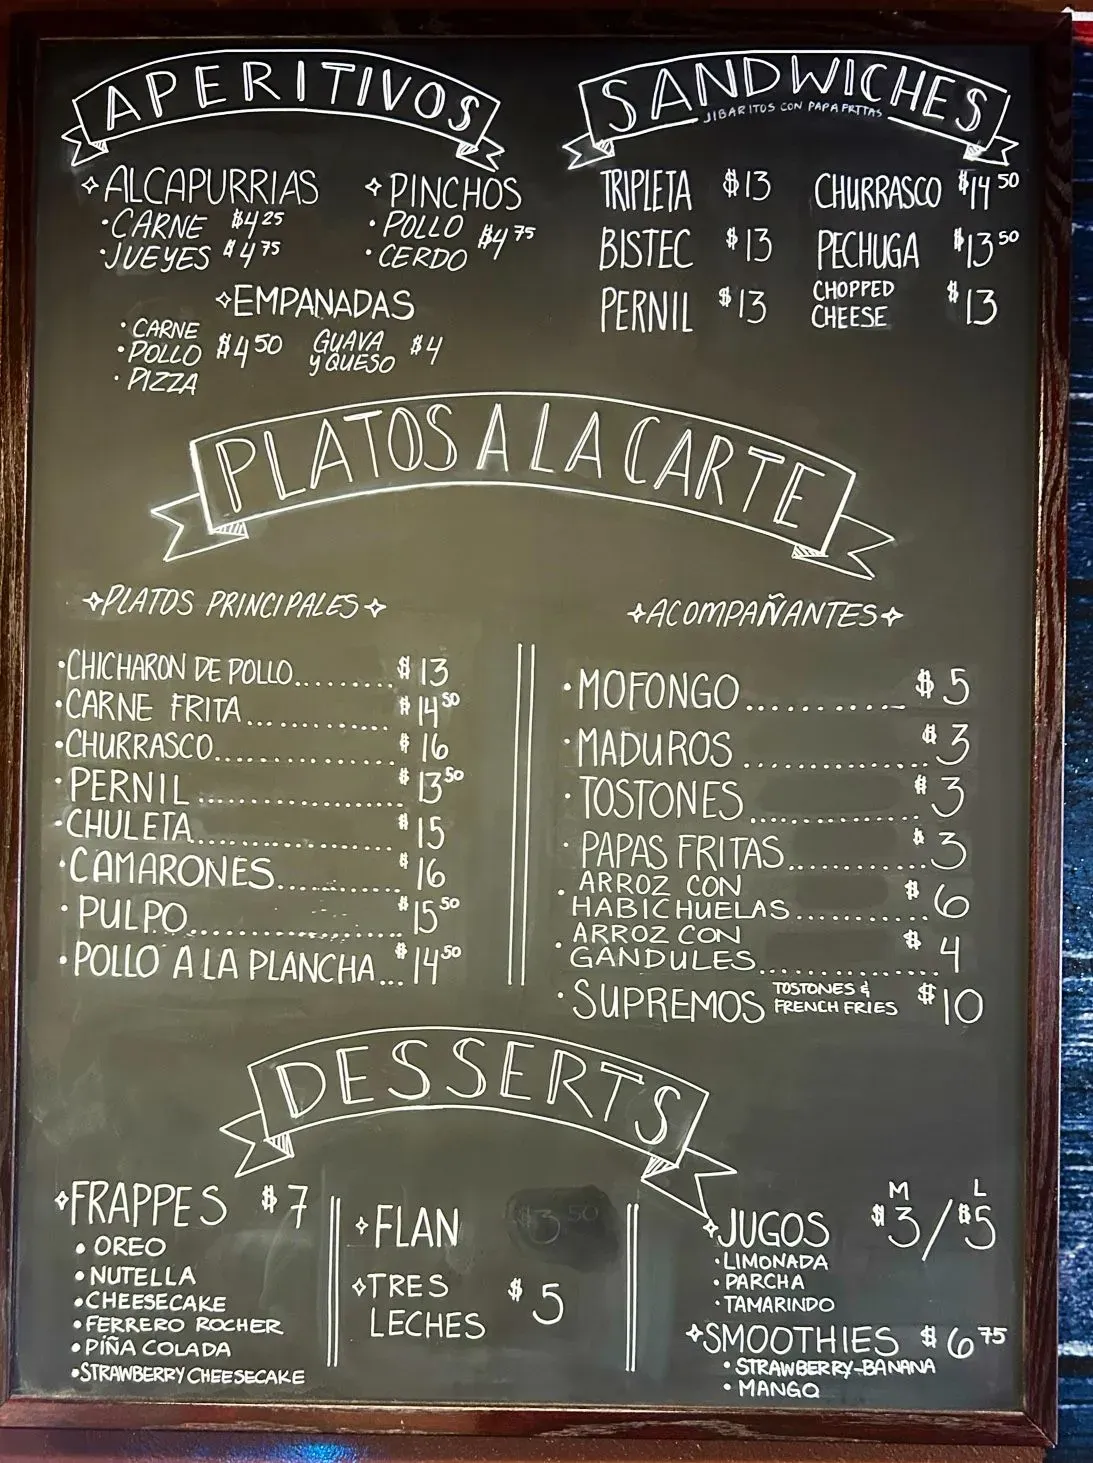 APERITIVOS
✧ALCAPURRIAS
·CARNE $4.25
·JUEYES $4.75
✧PINCHOS
·POLLO
·CERDO
$4.75
✧EMPANADAS
·CARNE
·POLLO
·PIZZA
$4.50
GUAVA
y QUESO
$4
SANDWICHES
JIBARITOS CON PAPA FRITAS
TRIPLETA $13
BISTEC $13
PERNIL $13
CHURRASCO $14.50
PECHUGA $13.50
CHOPPED
CHEESE
$13
PLATOS A LA CARTE
✧PLATOS PRINCIPALES✧
·CHICHARON DE POLLO......... $13
·CARNE FRITA............ $14.50
·CHURRASCO............... $16
·PERNIL................ $13.50
·CHULETA................ $15
·CAMARONES.......... $16
·PULPO.................. $15.50
·POLLO A LA PLANCHA... $14.50
✧ACOMPAÑANTES✧
·MOFONGO........... $5
·MADUROS.............. $3
·TOSTONES............. $3
·PAPAS FRITAS........... $3
·ARROZ CON
HABICHUELAS........... $6
·ARROZ CON
GANDULES.............. $4
·SUPREMOS TOSTONES &
FRENCH FRIES $10
DESSERTS
✧FRAPPES $7
·OREO
·NUTELLA
·CHEESECAKE
·FERRERO ROCHER
·PIÑA COLADA
·STRAWBERRY CHEESECAKE
✧FLAN $3.50
✧TRES
LECHES
$5
M L
✧JUGOS $3/$5
·LIMONADA
·PARCHA
·TAMARINDO
✧SMOOTHIES $6.75
·STRAWBERRY-BANANA
·MANGO